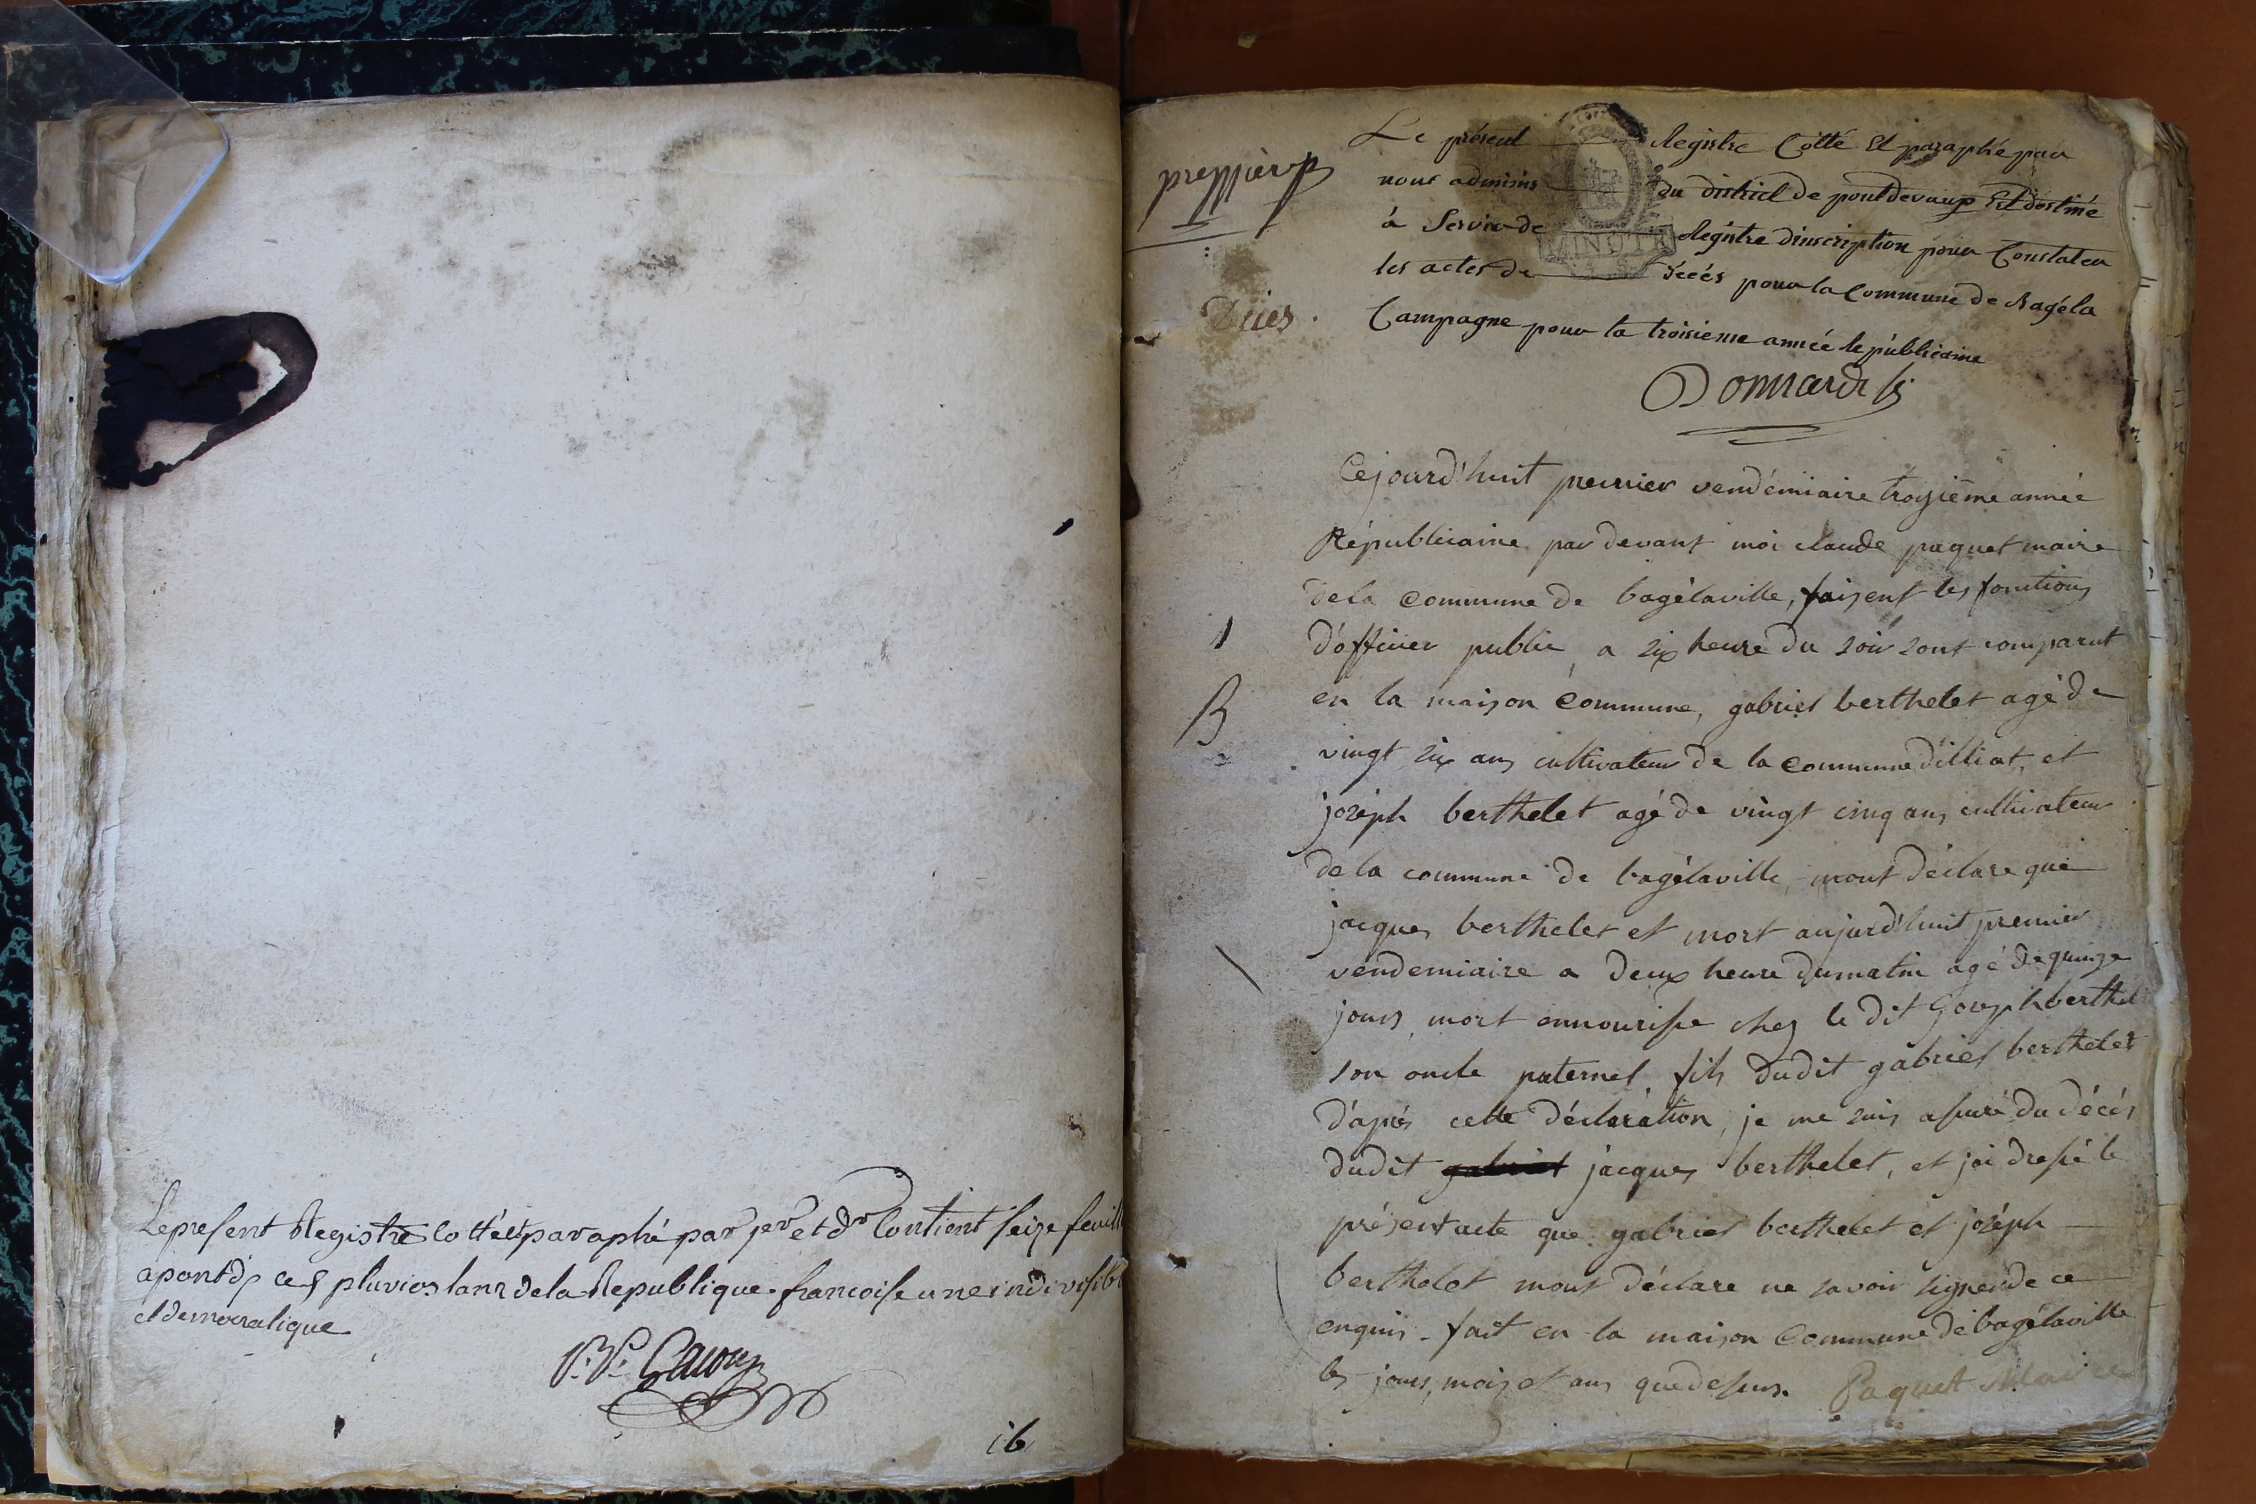 Le present Registre Cottéet paraphé par per et dr Contient seize feuill
a pont d ce 5 pluviôs lan 2 de la Republique francoise une indivisibl
et democratique
16
premier
Le présent Registre Cotté Et paraphé par
nous adminis du district de pontdevaux Est destiné
à Servir de Régistre d'inscription pour Constater
MINUTE
les actes de décés pour la Commune de Bagéla
Décés.
Campagne pour la troisieme année Républicaine
Cejourd'huit premier vendémiaire troysiême année
Républicaine par devant moi claude paquet maire
de la commune de bagélaville, faisent les fonctions
1
d'officier public, a six heure du soir sont comparut
en la maison commune, gabriel berthelet agé de
B
vingt six ans cultivateur de la commune d'illiat, et
joseph berthelet agé de vingt cinq ans cultivateur
de la commune de bagélaville, mont déclare que
jacques berthelet et mort aujourd'huit premier
vendemiaire a deux heure dumatin agé de quinze
jours, mort ennourisse chez le dit Joseph berthel
son oncle paternel, fils dudit gabriel berthelet
d'aprés cette déclaration, je me suis assuré du décés
dudit gabriel jacques berthelet, et jai dressé le
présent acte que gabriel berthelet et joséph
berthelet mont déclare ne savoir signer de ce
enquis. fait en la maison commune de bagélaville
les jours, mois et ans que dessus. Paquet Maire